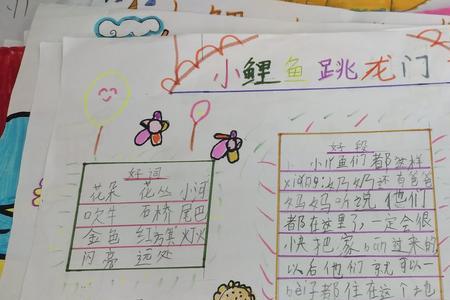 小鲤鱼跳龙门
好词
花朵 花丛 小河
吹牛 石桥 尾巴
金色 灯火
闪亮 远处
好段
小鲤鱼们都这样
xiǎng:奶奶还有爸爸
妈妈听说他们
都在这里了,一定会很
快把家bān过来的,
以后他们就可以一
bèi子都住在这个地